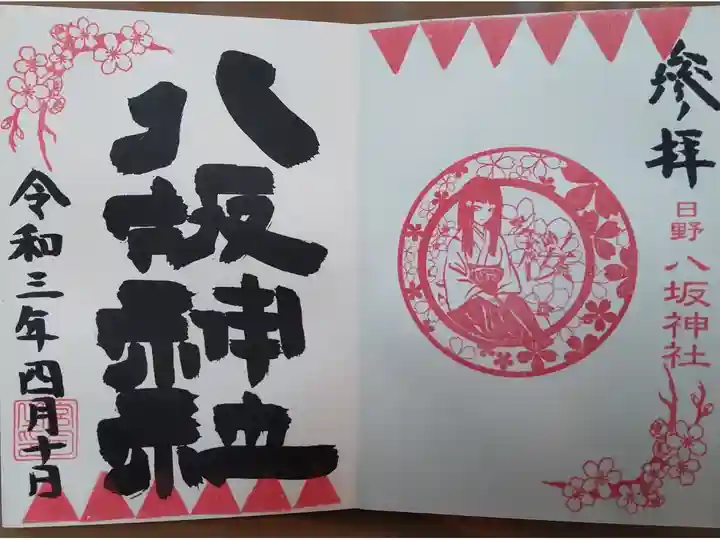 参拝
日野
八坂神社
八坂神社
令和三年四月十日